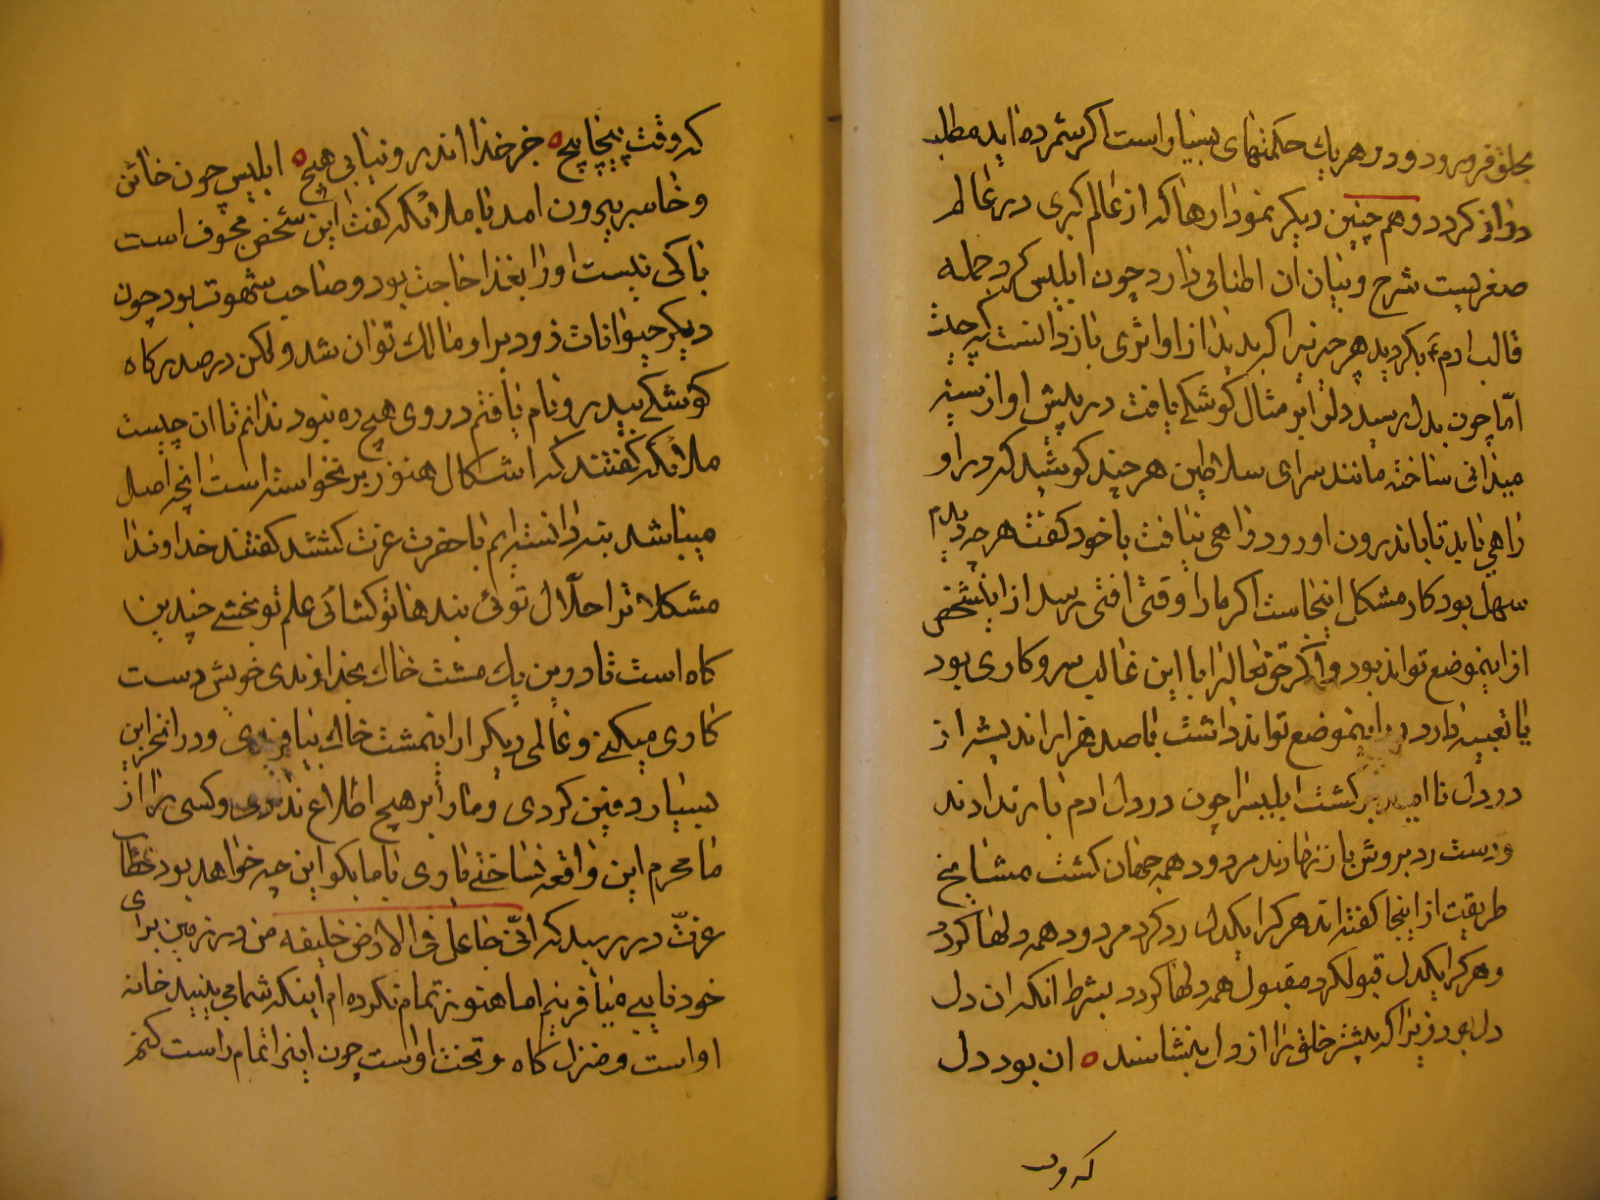 بحلق فرو رود و در هر یك حکمتهای بسیار است اکر شمرده اید مطلب
دراز کردد و هم چنین دیکر نمودارها که از عالم کبری در عالم
صغریست شرح و بیان ان اطنابی دارد چون ابلیس کرد جمله
قالب ادم ۴ بکردید هر چیز را که بدید از او اثری باز دانست که چیست
امّا چون بدل رسید دلرا بر مثال کوشکی یافت در پیش او از سینه
میدانی ساخته مانند سرای سلاطین هر چند کوشید که در او
راهی یابد تا باندرون او رود راهی نیافت با خود کفت هر چه دیدم
سهل بود کار مشکل اینجاست اکر ما را وقتی افتی رسد از این شخص
از این موضع تواند بود و اکر حق تعالی را با این غالب سر و کاری بود
یا تعبیه دارد در این موضع تواند داشت با صد هزار اندیشه از
در دل نا امید بر کشت ابلیس را چون در دل ادم بار ندادند
و دست رد بروش باز نهادند مردود همه جهان کشت مشایخ
طریقت از اینجا کفته اند هر کرا یکدل رد کرد مردود همه دلها کردد
و هر کرا یکدل قبول کرد مقبول همه دلها کردد بشرط انکه ان دل
دل بود زیرا که بیشتر خلق را از دل بنشناسند ه ان بود دل
که وقت
که وقت پیچاپیچ ه جز خدا اندر و نیابی هیچ ه ابلیس چون خائن
و خاسر بیرون امد با ملائکه کفت این شخص مجوف است
باکی نیست او را بغذا حاجت بود و صاحب شهوت بود چون
دیکر حیوانات زود بر او مالك توان شد و لکن در صدر کاه
کوشکی بیدر و بام یافتم در وی هیچ ره نبود ندانم تا ان چیست
ملائکه کفتند که اشکال هنوز بر نخواسته است انچه اصل
میباشد بنه دانسته ایم با حضرت عزت کشتند کفتند خداوندا
مشکلات را حلّال توئی بندها تو کشائی علم تو بخشی چندین
کاه است تا درین یك مشت خاك بخداوندی خویش دست
کاری میکنی و عالمی دیکر از این مشت خاك بیافریدی و در انجا این
بسیار دفین کردی و ما را بر هیچ اطلاع ندادی و کسی را از
ما محرم این واقعه نساختی باری با ما بکو این چه خواهد بود خطاب
عزّت در رسید که انّی جاعل فی الارض خلیفه من در زمین برای
خود نایبی میافرینم اما هنوز تمام نکرده ام اینکه شما می بینید خانه
او است و منزل کاه و تخت اواست چون اینرا تمام راست کنم